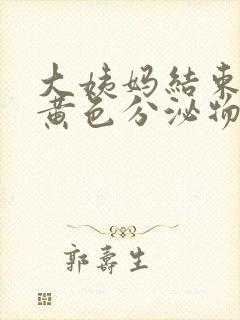 大姨妈結束
黄色分泌物
郭壽生